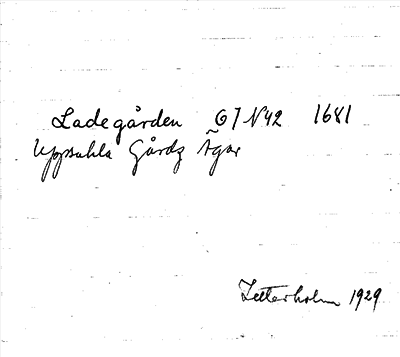 Ladegården G7 N42 1681
Uppsahla Gårdz Ägor
Zetterholm 1929